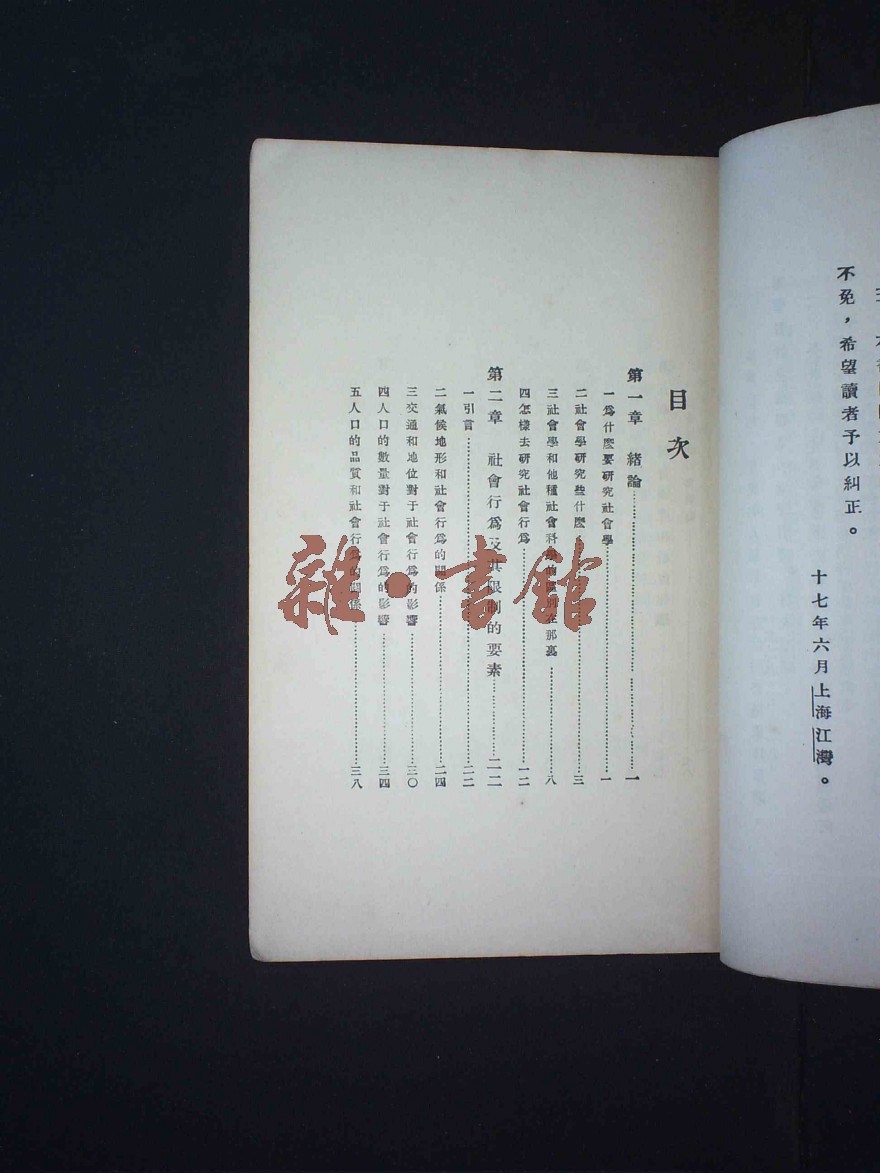 不免，希望讀者予以糾正。
十七年六月上海江灣。
目次
第一章 緒論……一
一爲什麼要研究社會學……一
二社會學研究些什麼……三
三社會學和他種社會科學的區別在那裏……八
四怎樣去研究社會行爲……一二
第二章 社會行爲及其限制的要素……二二
一引言……二二
二氣候地形和社會行爲的關係……二四
三交通和地位對于社會行爲的影響……三〇
四人口的數量對于社會行爲的影響……三四
五人口的品質和社會行爲的關係……三八
雜·書館